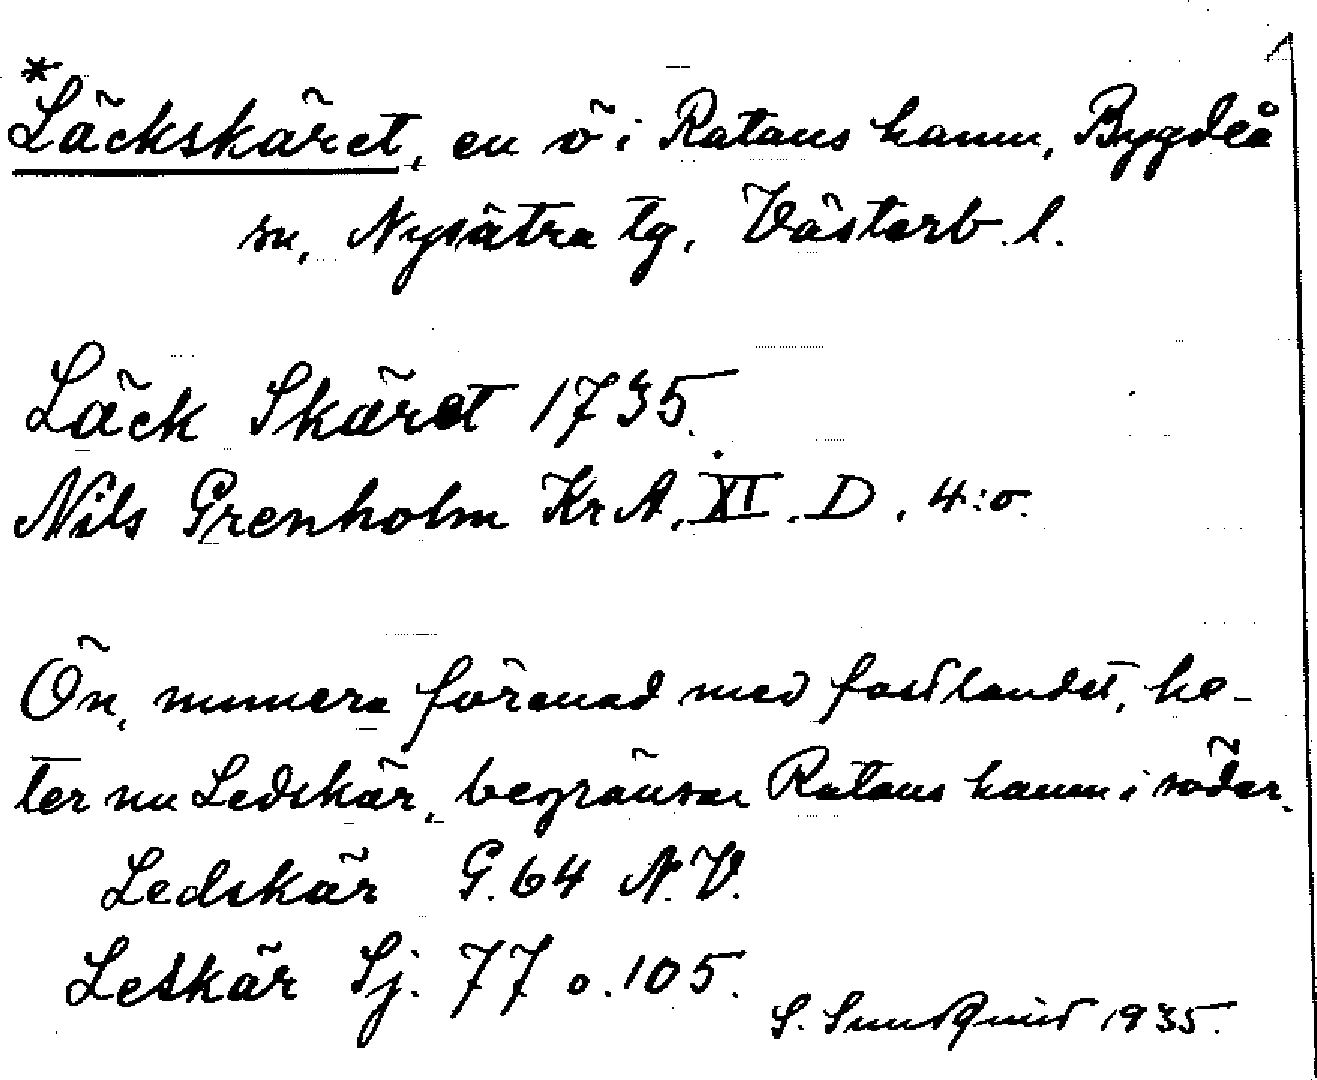 *Läckskäret, en ö i Ratans hamn, Bygdeå
sn, Nysätra tg, Västerb. l.
Läck Skäret 1735.
Nils Grenholm KrA. XI. D. 4:o.
Ön, numera förenad med fastlandet, he-
ter nu Ledskär, begränsar Ratans hamn i söder.
Ledskär G. 64 N.V.
Letskär Sj. 77 o. 105.
S. Sundqvist 1935.